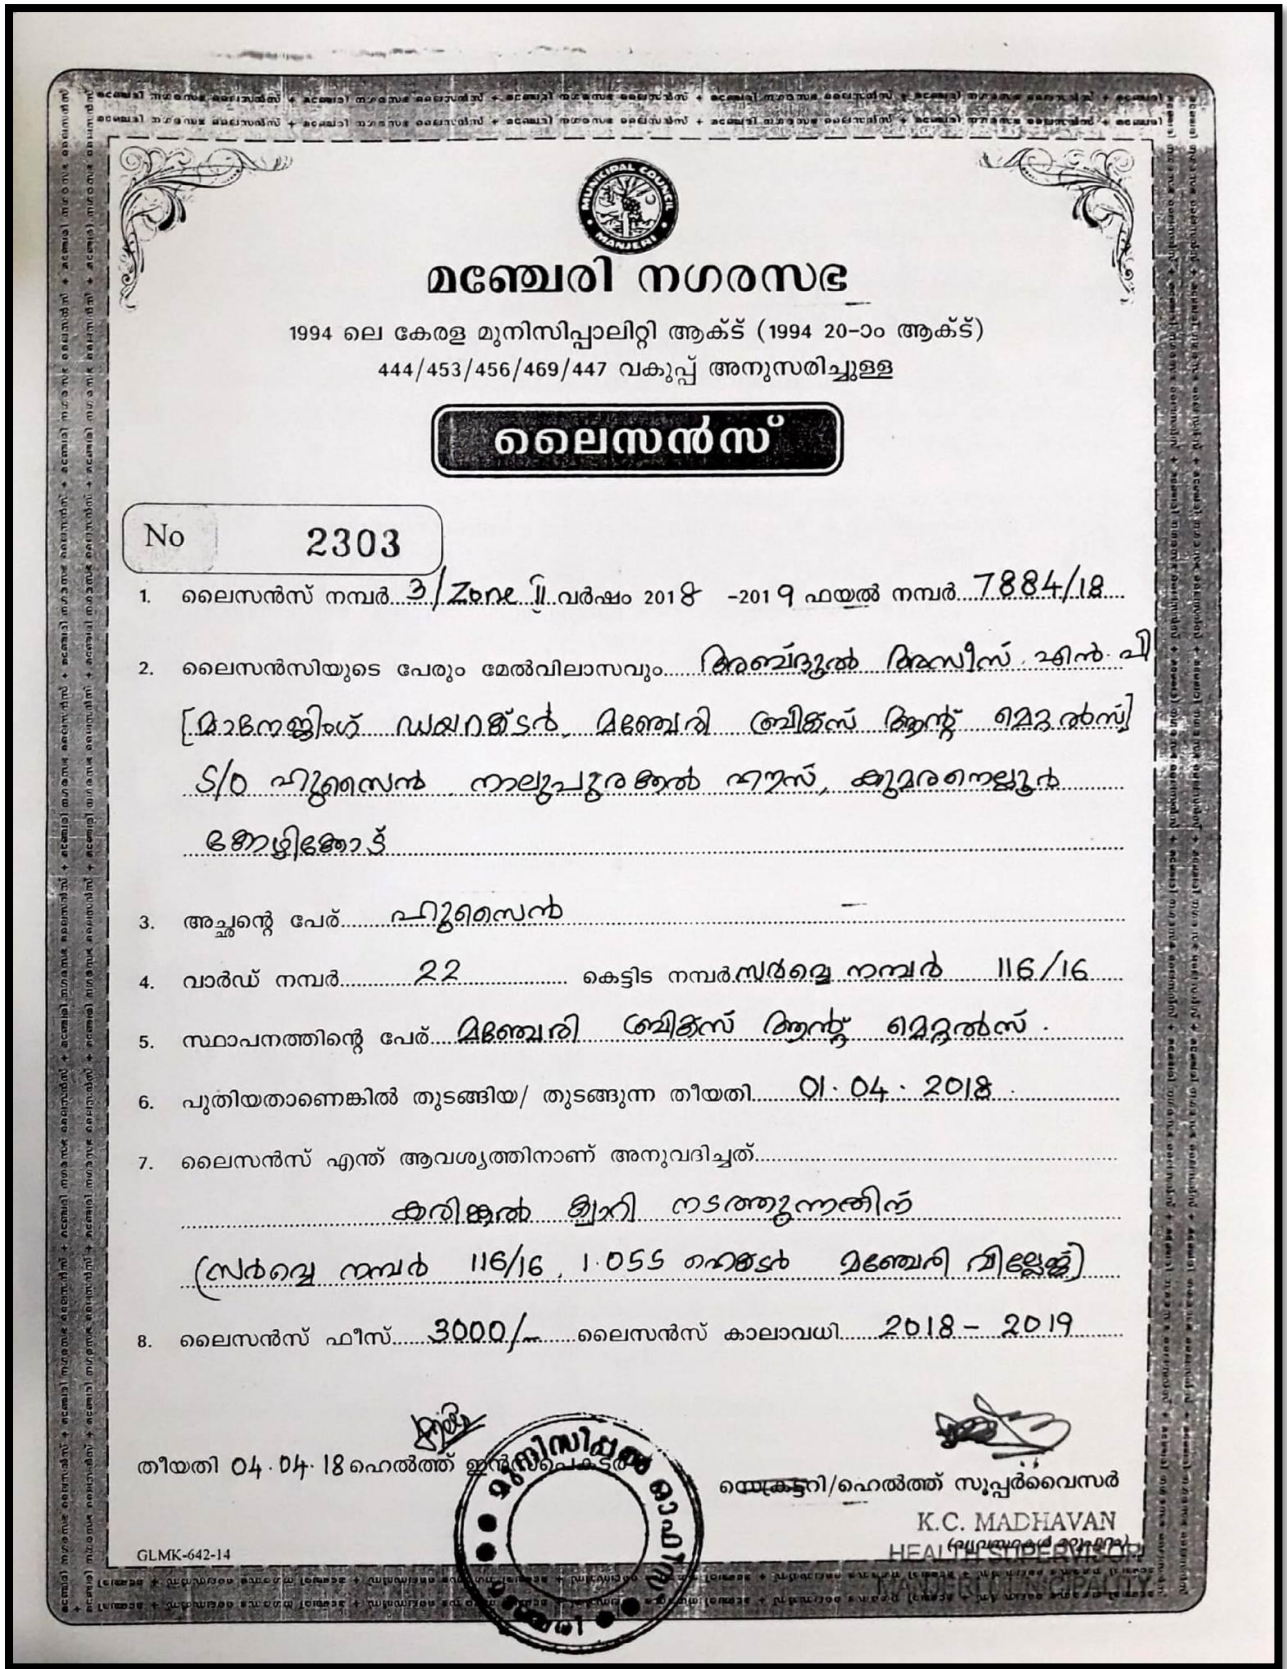 MUNICIPAL COUNCIL
MANJERI
മഞ്ചേരി നഗരസഭ
1994 ലെ കേരള മുനിസിപ്പാലിറ്റി ആക്ട് (1994 20-ാം ആക്ട്)
444/453/456/469/447 വകുപ്പ് അനുസരിച്ചുള്ള
ലൈസൻസ്
No 2303
1. ലൈസൻസ് നമ്പർ 3/Zone II വർഷം 2018 -2019 ഫയൽ നമ്പർ 7884/18
2. ലൈസൻസിയുടെ പേരും മേൽവിലാസവും അബ്ദുൽ അസീസ്. എൻ. പി
[മാനേജിംഗ് ഡയറക്ടർ, മഞ്ചേരി ബ്രിക്സ് ആന്റ് മെറ്റൽസ്]
S/O ഹുസൈൻ നാലുപുരക്കൽ ഹൗസ്, കുമരനെല്ലൂർ
കോഴിക്കോട്
3. അച്ഛന്റെ പേര് ഹുസൈൻ
4. വാർഡ് നമ്പർ 22 കെട്ടിട നമ്പർ സർവ്വെ നമ്പർ 116/16
5. സ്ഥാപനത്തിന്റെ പേര് മഞ്ചേരി ബ്രിക്സ് ആന്റ് മെറ്റൽസ്.
6. പുതിയതാണെങ്കിൽ തുടങ്ങിയ/ തുടങ്ങുന്ന തീയതി 01.04.2018
7. ലൈസൻസ് എന്ത് ആവശ്യത്തിനാണ് അനുവദിച്ചത്
കരിങ്കൽ ക്വാറി നടത്തുന്നതിന്
(സർവ്വെ നമ്പർ 116/16, 1.055 ഹെക്ടർ മഞ്ചേരി വില്ലേജ്)
8. ലൈസൻസ് ഫീസ് 3000/- ലൈസൻസ് കാലാവധി 2018 - 2019
തീയതി 04.04.18 ഹെൽത്ത് ഇൻസ്പെക്ടർ
സെക്രട്ടറി/ഹെൽത്ത് സൂപ്പർവൈസർ
K.C. MADHAVAN
(വ്യവസ്ഥകൾ മറുപുറം)
HEALTH SUPERVISOR
GLMK-642-14
മുനിസിപ്പൽ ഓഫീസ് മഞ്ചേരി